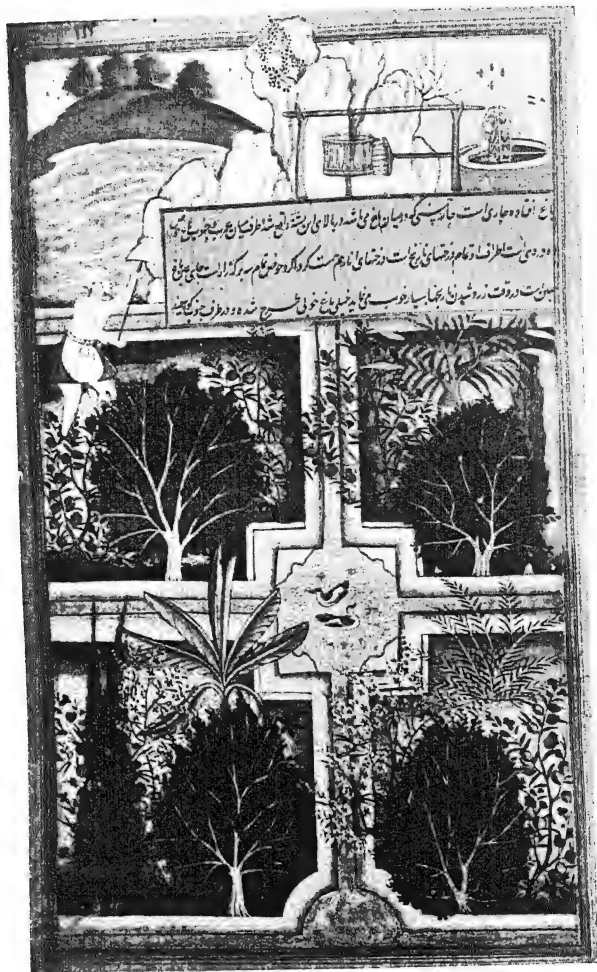 باغ افتاده جاری است که در میان باغ می باشد در بالای این پشته واقع شده طرف میان
ده در دهی است اطراف او تمام درختهای نارنج است درختهای انار هم هست گرداگرد حوض تمام سه برگه زار است جای عین باغ
همین است در وقت زرد شدن نارنجها بسیار خوب می نماید خیلی باغ خوبی طرح شده و در طرف جنوب